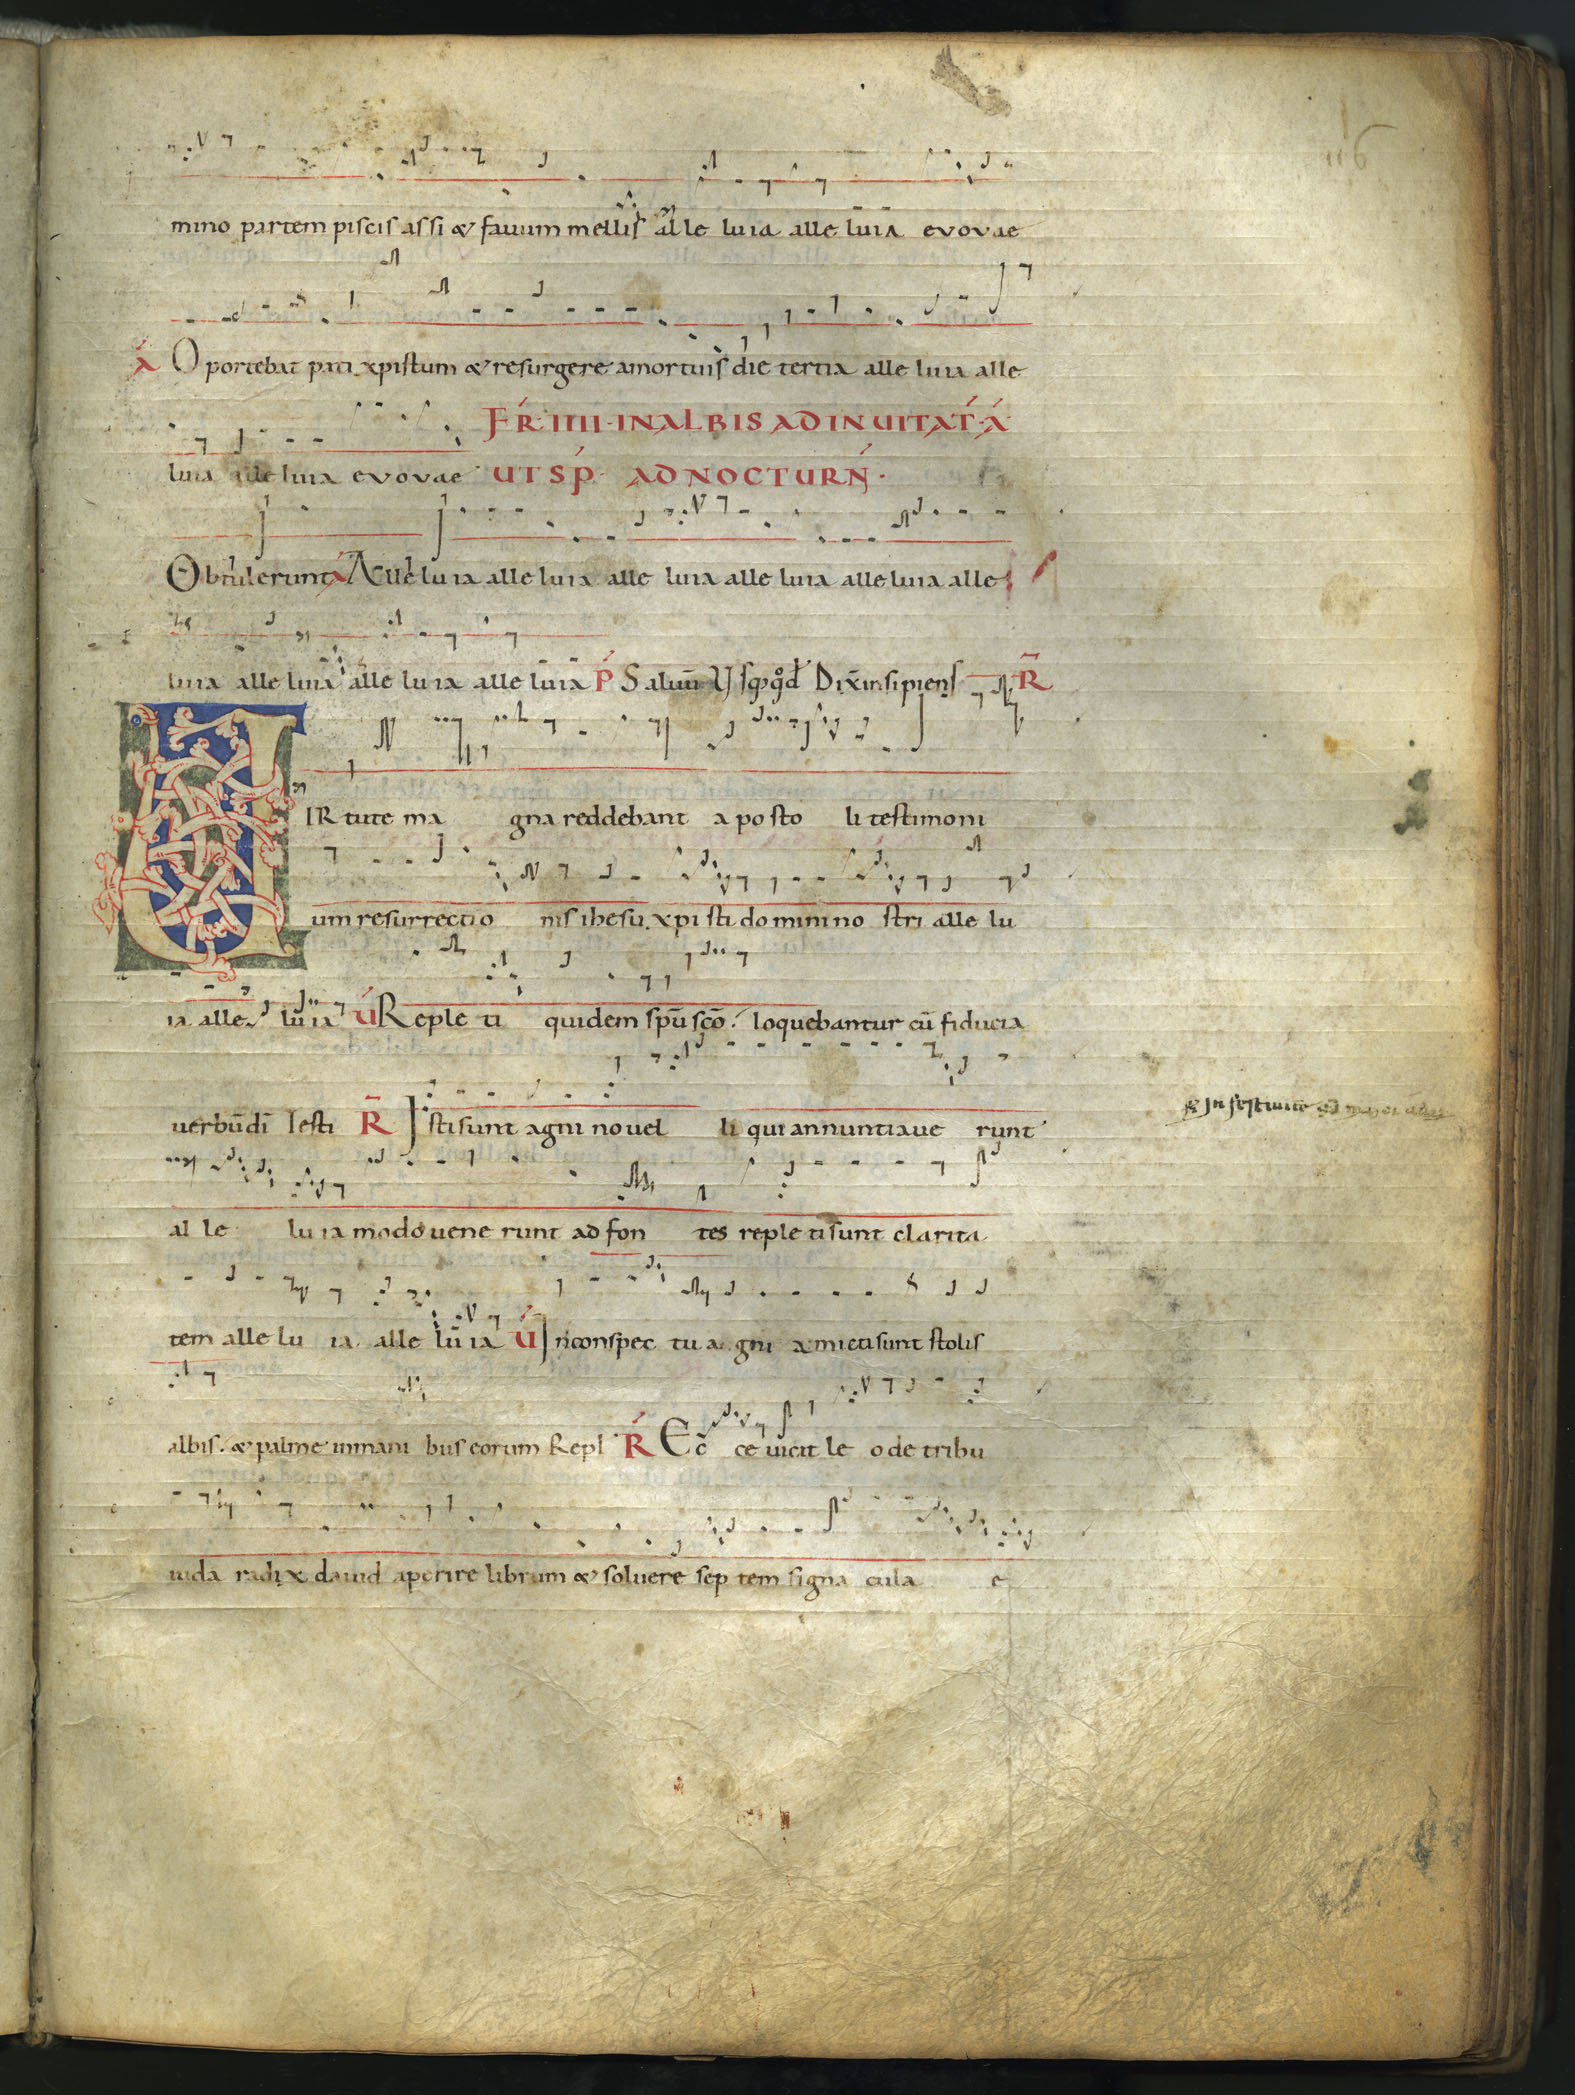 116
mino partem piscis assi & fauum mellis alle luia alle luia evovae
A Oportebat pati xpistum & resurgere amortuis die tertia alle luia alle
FR IIII· IN ALBIS AD INUITAT· A
luia alle luia evovae UT SP· AD NOCTURN·
Obtulerunt A Alle luia alle luia alle luia alle luia alle luia alle
luia alle luia alle luia alle luia P Saluū Usq̨q̊d Dix̄ insipiens R
UIR tute ma gna reddebant a po sto li testimoni
um resurrectio nis ihesu xpi sti do mini no stri alle lu
ia alle luia V Reple ti quidem spū scō· loquebantur cū fiducia
uerbūdī Testi R Isti sunt agni nouel li qui annuntiaue runt
& In festiuit
al le luia modo uene runt ad fon tes reple ti sunt clarita
tem alle lu ia alle lū ia V In conspec tu a gni amicti sunt stolis
albis· & palme inmani bus eorum Repl R Ec ce uicit le o de tribu
iuda radix dauid aperire librum & soluere sep tem signa cula e